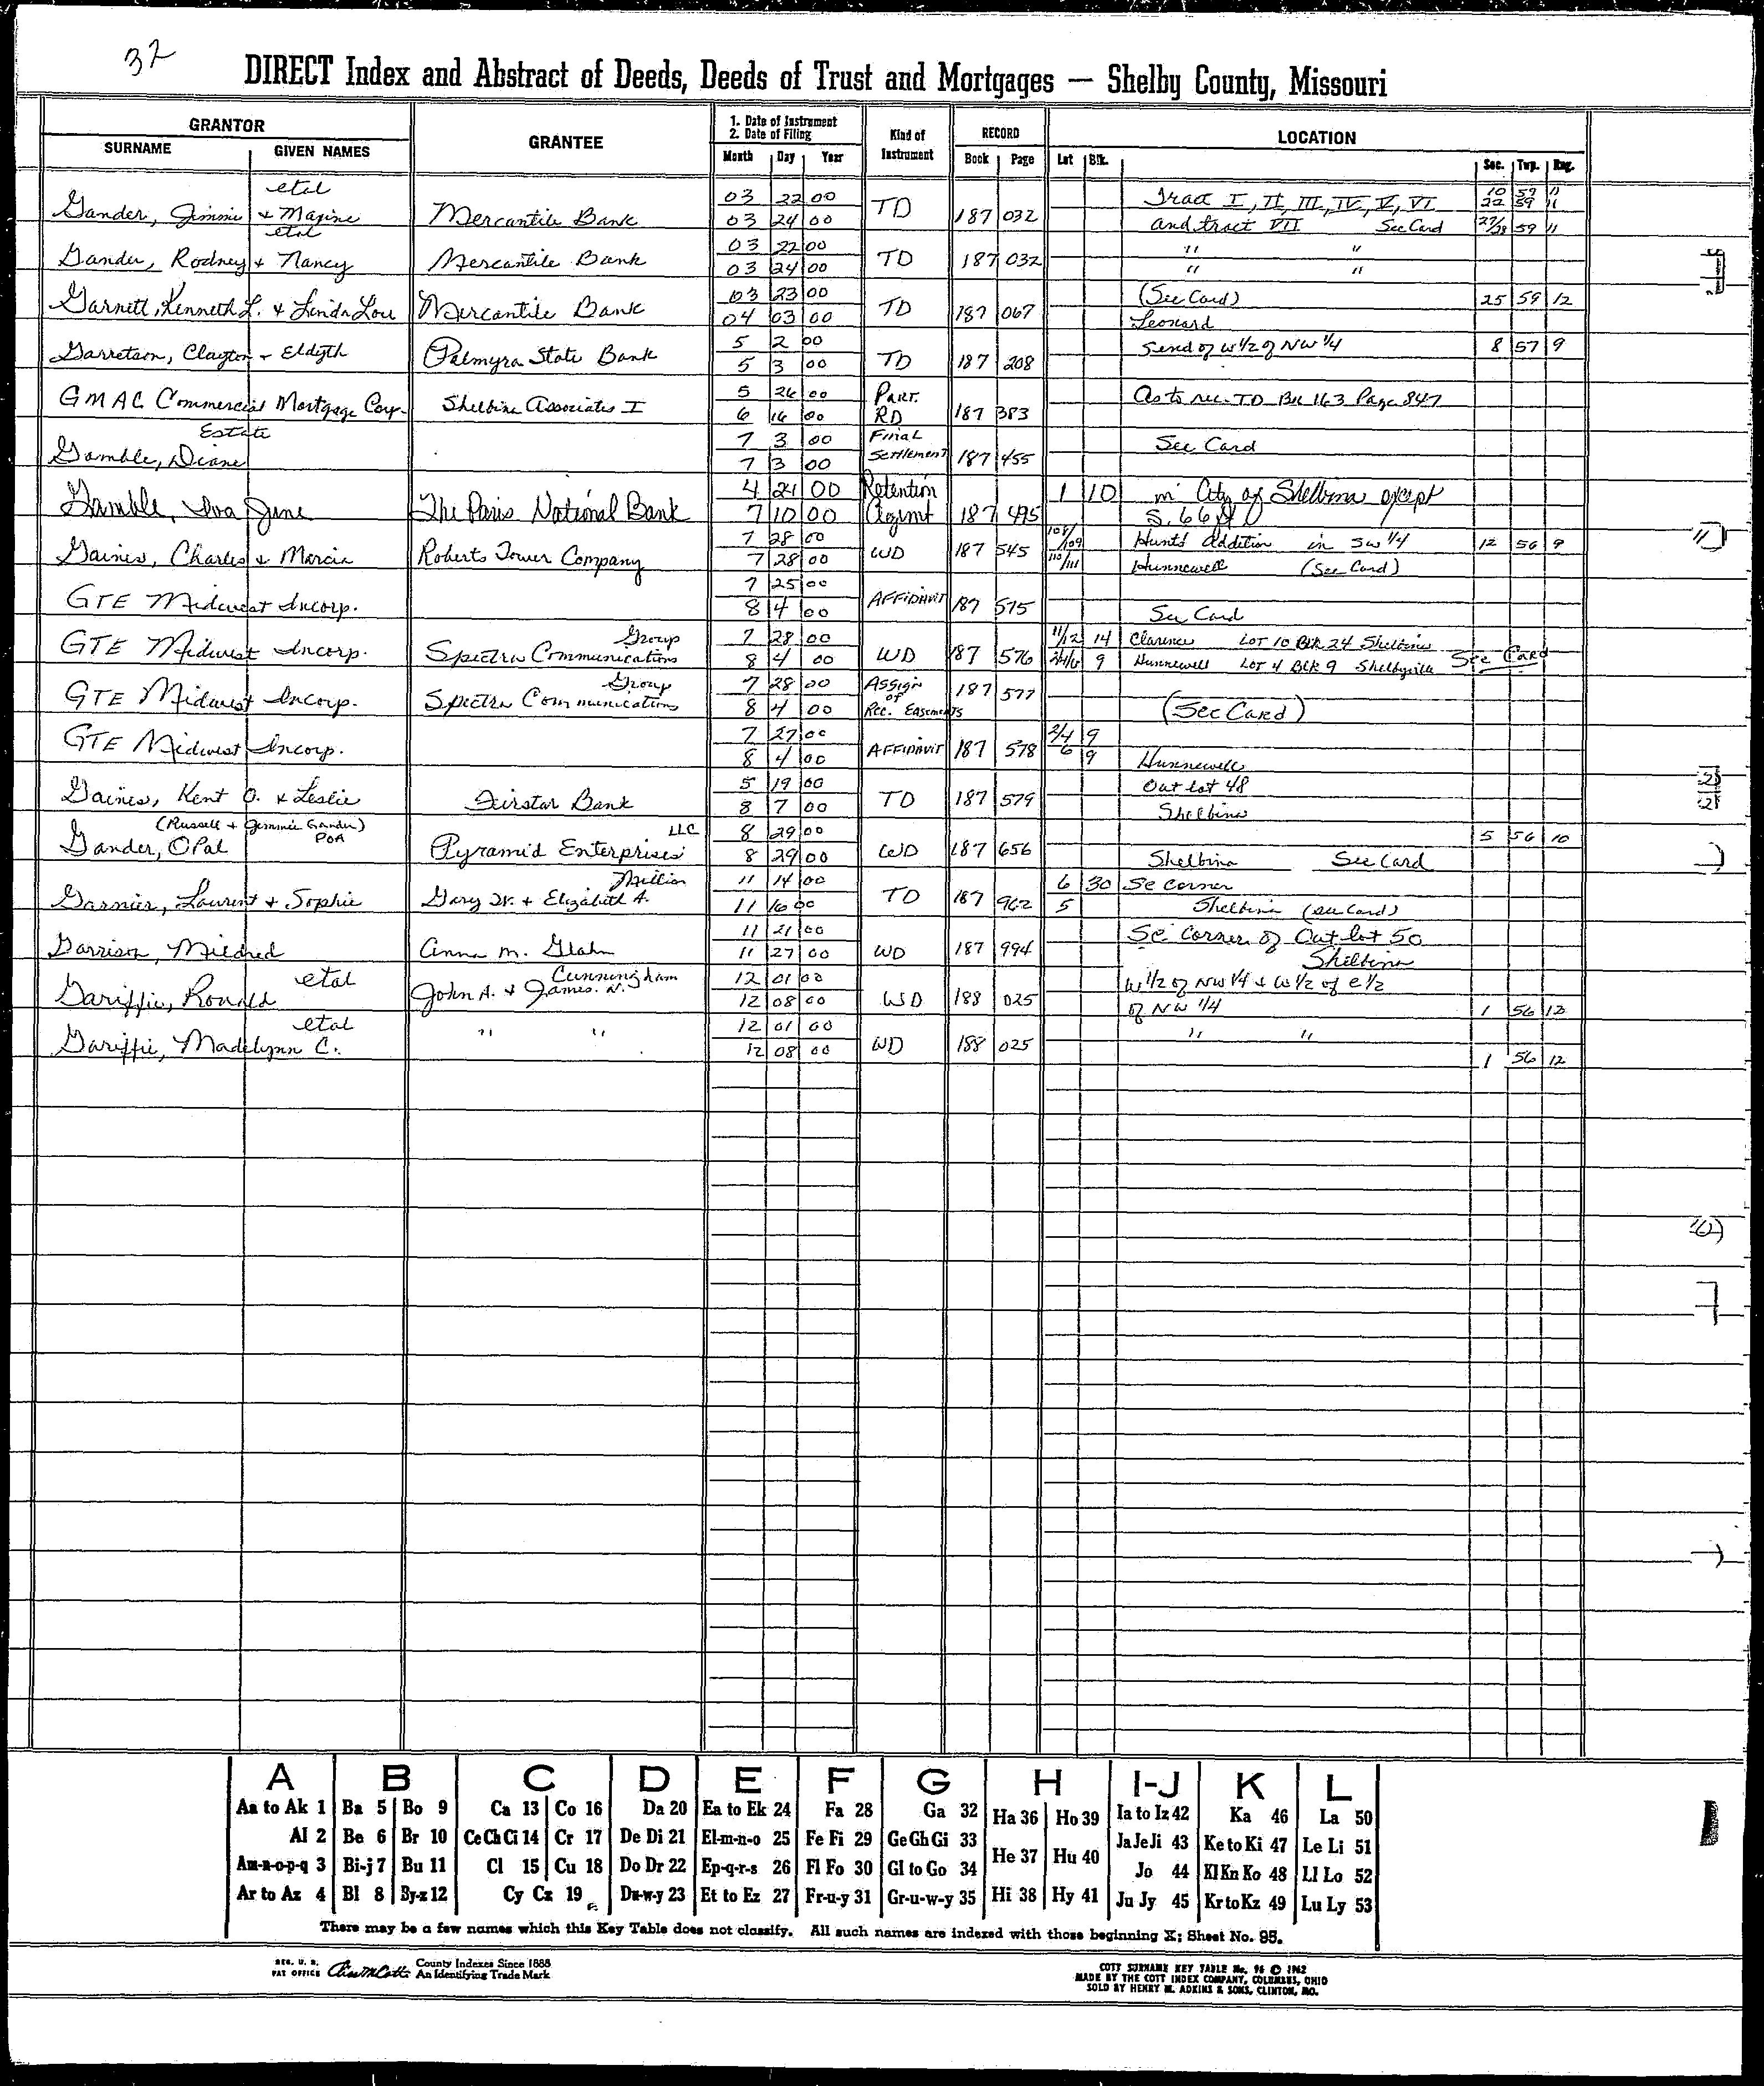 32
DIRECT Index and Abstract of Deeds, Deeds of Trust and Mortgages — Shelby County, Missouri
GRANTOR
SURNAME GIVEN NAMES
GRANTEE
1. Date of Instrument
2. Date of Filing
Month Day Year
Kind of Instrument
RECORD
Book Page
LOCATION
Lot Blk. Sec. Twp. Rng.
etal 03 22 00 Tract I, II, III, IV, V, VI 10 59 11
22 59 11
Gander, Jimmie & Maxine Mercantile Bank 03 24 00 TD 187 032 and tract VII See Card 27/28 59 11
etal 03 22 00 " "
Gander, Rodney & Nancy Mercantile Bank 03 24 00 TD 187 032 " "
03 23 00 (See Card) 25 59 12
Garnett, Kenneth L. & Linda Lou Mercantile Bank 04 03 00 TD 187 067 Leonard
5 2 00 Send of W 1/2 of NW 1/4 8 57 9
Garretson, Clayton & Eldyth Palmyra State Bank 5 3 00 TD 187 208
5 26 00 Part. As to rec. TD Bk 163 Page 847
GMAC Commercial Mortgage Corp. Shelbina Associates I 6 16 00 RD 187 383
Estate 7 3 00 Final See Card
Gamble, Diane 7 3 00 Settlement 187 455
4 21 00 Retention 1 10 in City of Shelbina except
Gamble, Iva June The Paris National Bank 7 10 00 Agrmt 187 495 S. 66 ft
7 28 00 108/109 Hunts addition in SW 1/4 12 56 9
Gaines, Charles & Marcia Roberts Tower Company 7 28 00 WD 187 545 110/111 Hunnewell (See Card)
7 25 00
GTE Midwest Incorp. 8 4 00 Affidavit 187 575 See Card
Group 7 28 00 11/12 14 Clarence Lot 10 Blk 24 Shelbina
GTE Midwest Incorp. Spectra Communications 8 4 00 WD 187 576 2/4/6 9 Hunnewell Lot 4 Blk 9 Shelbyville See Card
Group 7 28 00 Assign of
GTE Midwest Incorp. Spectra Communications 8 4 00 Rec. Easements 187 577 (See Card)
7 27 00 2/4 9
GTE Midwest Incorp. 8 4 00 Affidavit 187 578 6 9 Hunnewell
5 19 00 Out lot 48
Gaines, Kent O. & Leslie Firstar Bank 8 7 00 TD 187 579 Shelbina
(Russell & Jimmie Gander) POA LLC 8 29 00 5 56 10
Gander, Opal Pyramid Enterprises 8 29 00 WD 187 656 Shelbina See Card
Million 11 14 00 6 30 Se corner
Garnier, Laurent & Sophie Gary W. & Elizabeth A. 11 16 00 TD 187 962 5 Shelbina (see Card)
11 21 00 SE corner of Out lot 50
Garrison, Mildred Anna M. Glahn 11 27 00 WD 187 994 Shelbina
etal Cunningham 12 01 00 W 1/2 of NW 1/4 & W 1/2 of E 1/2
Gariffie, Ronald John A. & James N. 12 08 00 WD 188 025 of NW 1/4 1 56 12
etal 12 01 00 " "
Gariffie, Madelynn C. " " 12 08 00 WD 188 025 1 56 12
A B C D E F G H I-J K L
Aa to Ak 1 Ba 5 Bo 9 Ca 13 Co 16 Da 20 Ea to Ek 24 Fa 28 Ga 32 Ha 36 Ho 39 Ia to Iz 42 Ka 46 La 50
Al 2 Be 6 Br 10 Ce Ch Ci 14 Cr 17 De Di 21 El-m-n-o 25 Fe Fi 29 Ge Gh Gi 33 He 37 Hu 40 Ja Je Ji 43 Ke to Ki 47 Le Li 51
Am-n-o-p-q 3 Bi-j 7 Bu 11 Cl 15 Cu 18 Do Dr 22 Ep-q-r-s 26 Fl Fo 30 Gl to Go 34 Jo 44 Kl Kn Ko 48 Ll Lo 52
Ar to Az 4 Bl 8 By-z 12 Cy Cz 19 Du-w-y 23 Et to Ez 27 Fr-u-y 31 Gr-u-w-y 35 Hi 38 Hy 41 Ju Jy 45 Kr to Kz 49 Lu Ly 53
There may be a few names which this Key Table does not classify. All such names are indexed with those beginning X; Sheet No. 95.
REG. U. S. PAT OFFICE County Indexes Since 1888
An Identifying Trade Mark
COTT SURNAME KEY TABLE No. 96 © 1962
MADE BY THE COTT INDEX COMPANY, COLUMBUS, OHIO
SOLD BY HENRY M. ADKINS & SONS, CLINTON, MO.